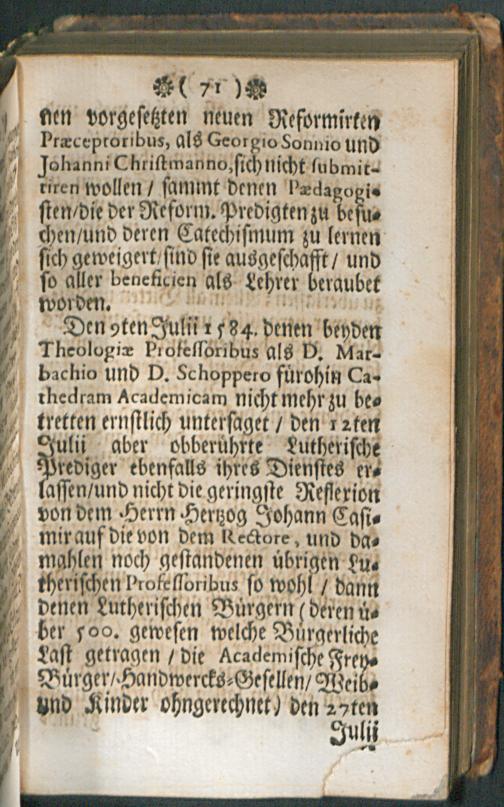 ❁( 71 )❁
nen vorgesetzten neuen Reformirten
Præceptoribus, als Georgio Sonnio und
Johanni Christmanno, sich nicht submit-
tiren wollen / sammt denen Pædagogi-
sten/die der Reform. Predigten zu besu-
chen/und deren Catechismum zu lernen
sich geweigert/sind sie ausgeschafft / und
so aller beneficien als Lehrer beraubet
worden.
Den 9ten Julii 1584. denen beyden
Theologiæ Professoribus als D. Mar-
bachio und D. Schoppero fürohin Ca-
thedram Academicam nicht mehr zu be-
tretten ernstlich untersaget / den 12ten
Julii aber obberührte Lutherische
Prediger ebenfalls ihres Dienstes er-
lassen/und nicht die geringste Reflexion
von dem Herrn Hertzog Johann Casi-
mir auf die von dem Rectore, und da-
mahlen noch gestandenen übrigen Lu-
therischen Professoribus so wohl / dann
denen Lutherischen Bürgern (deren ü-
ber 500. gewesen welche Bürgerliche
Last getragen / die Academische Frey-
Bürger/Handwercks-Gesellen/ Weib-
und Kinder ohngerechnet) den 27ten
Julii